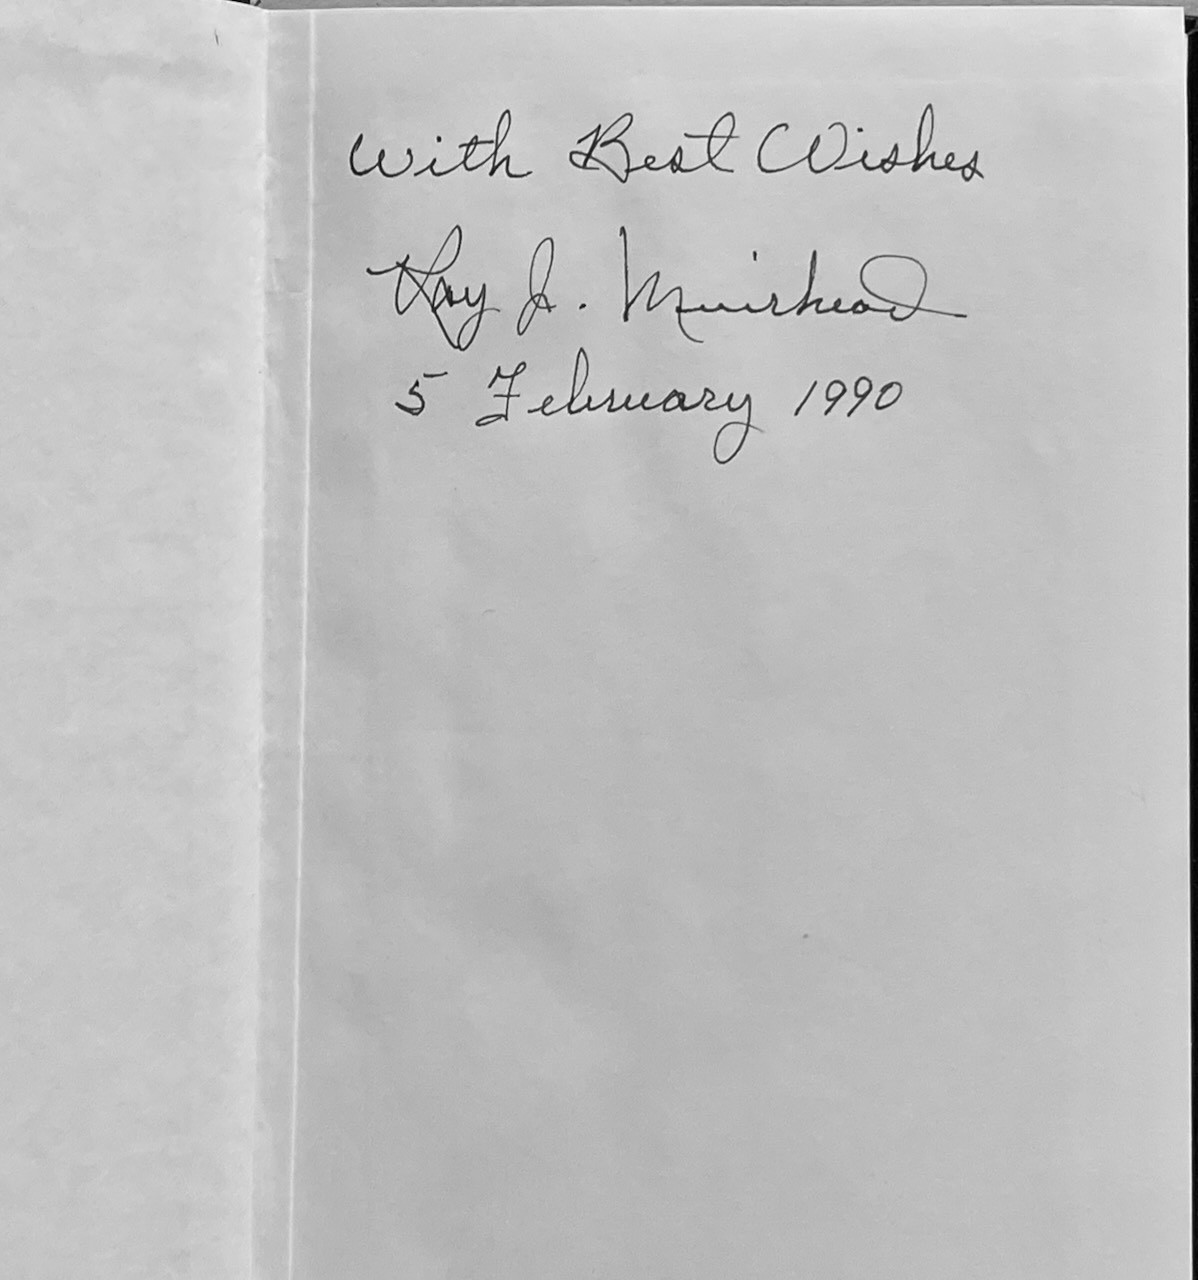 With Best Wishes
Ray J. Muirhead
5 February 1990